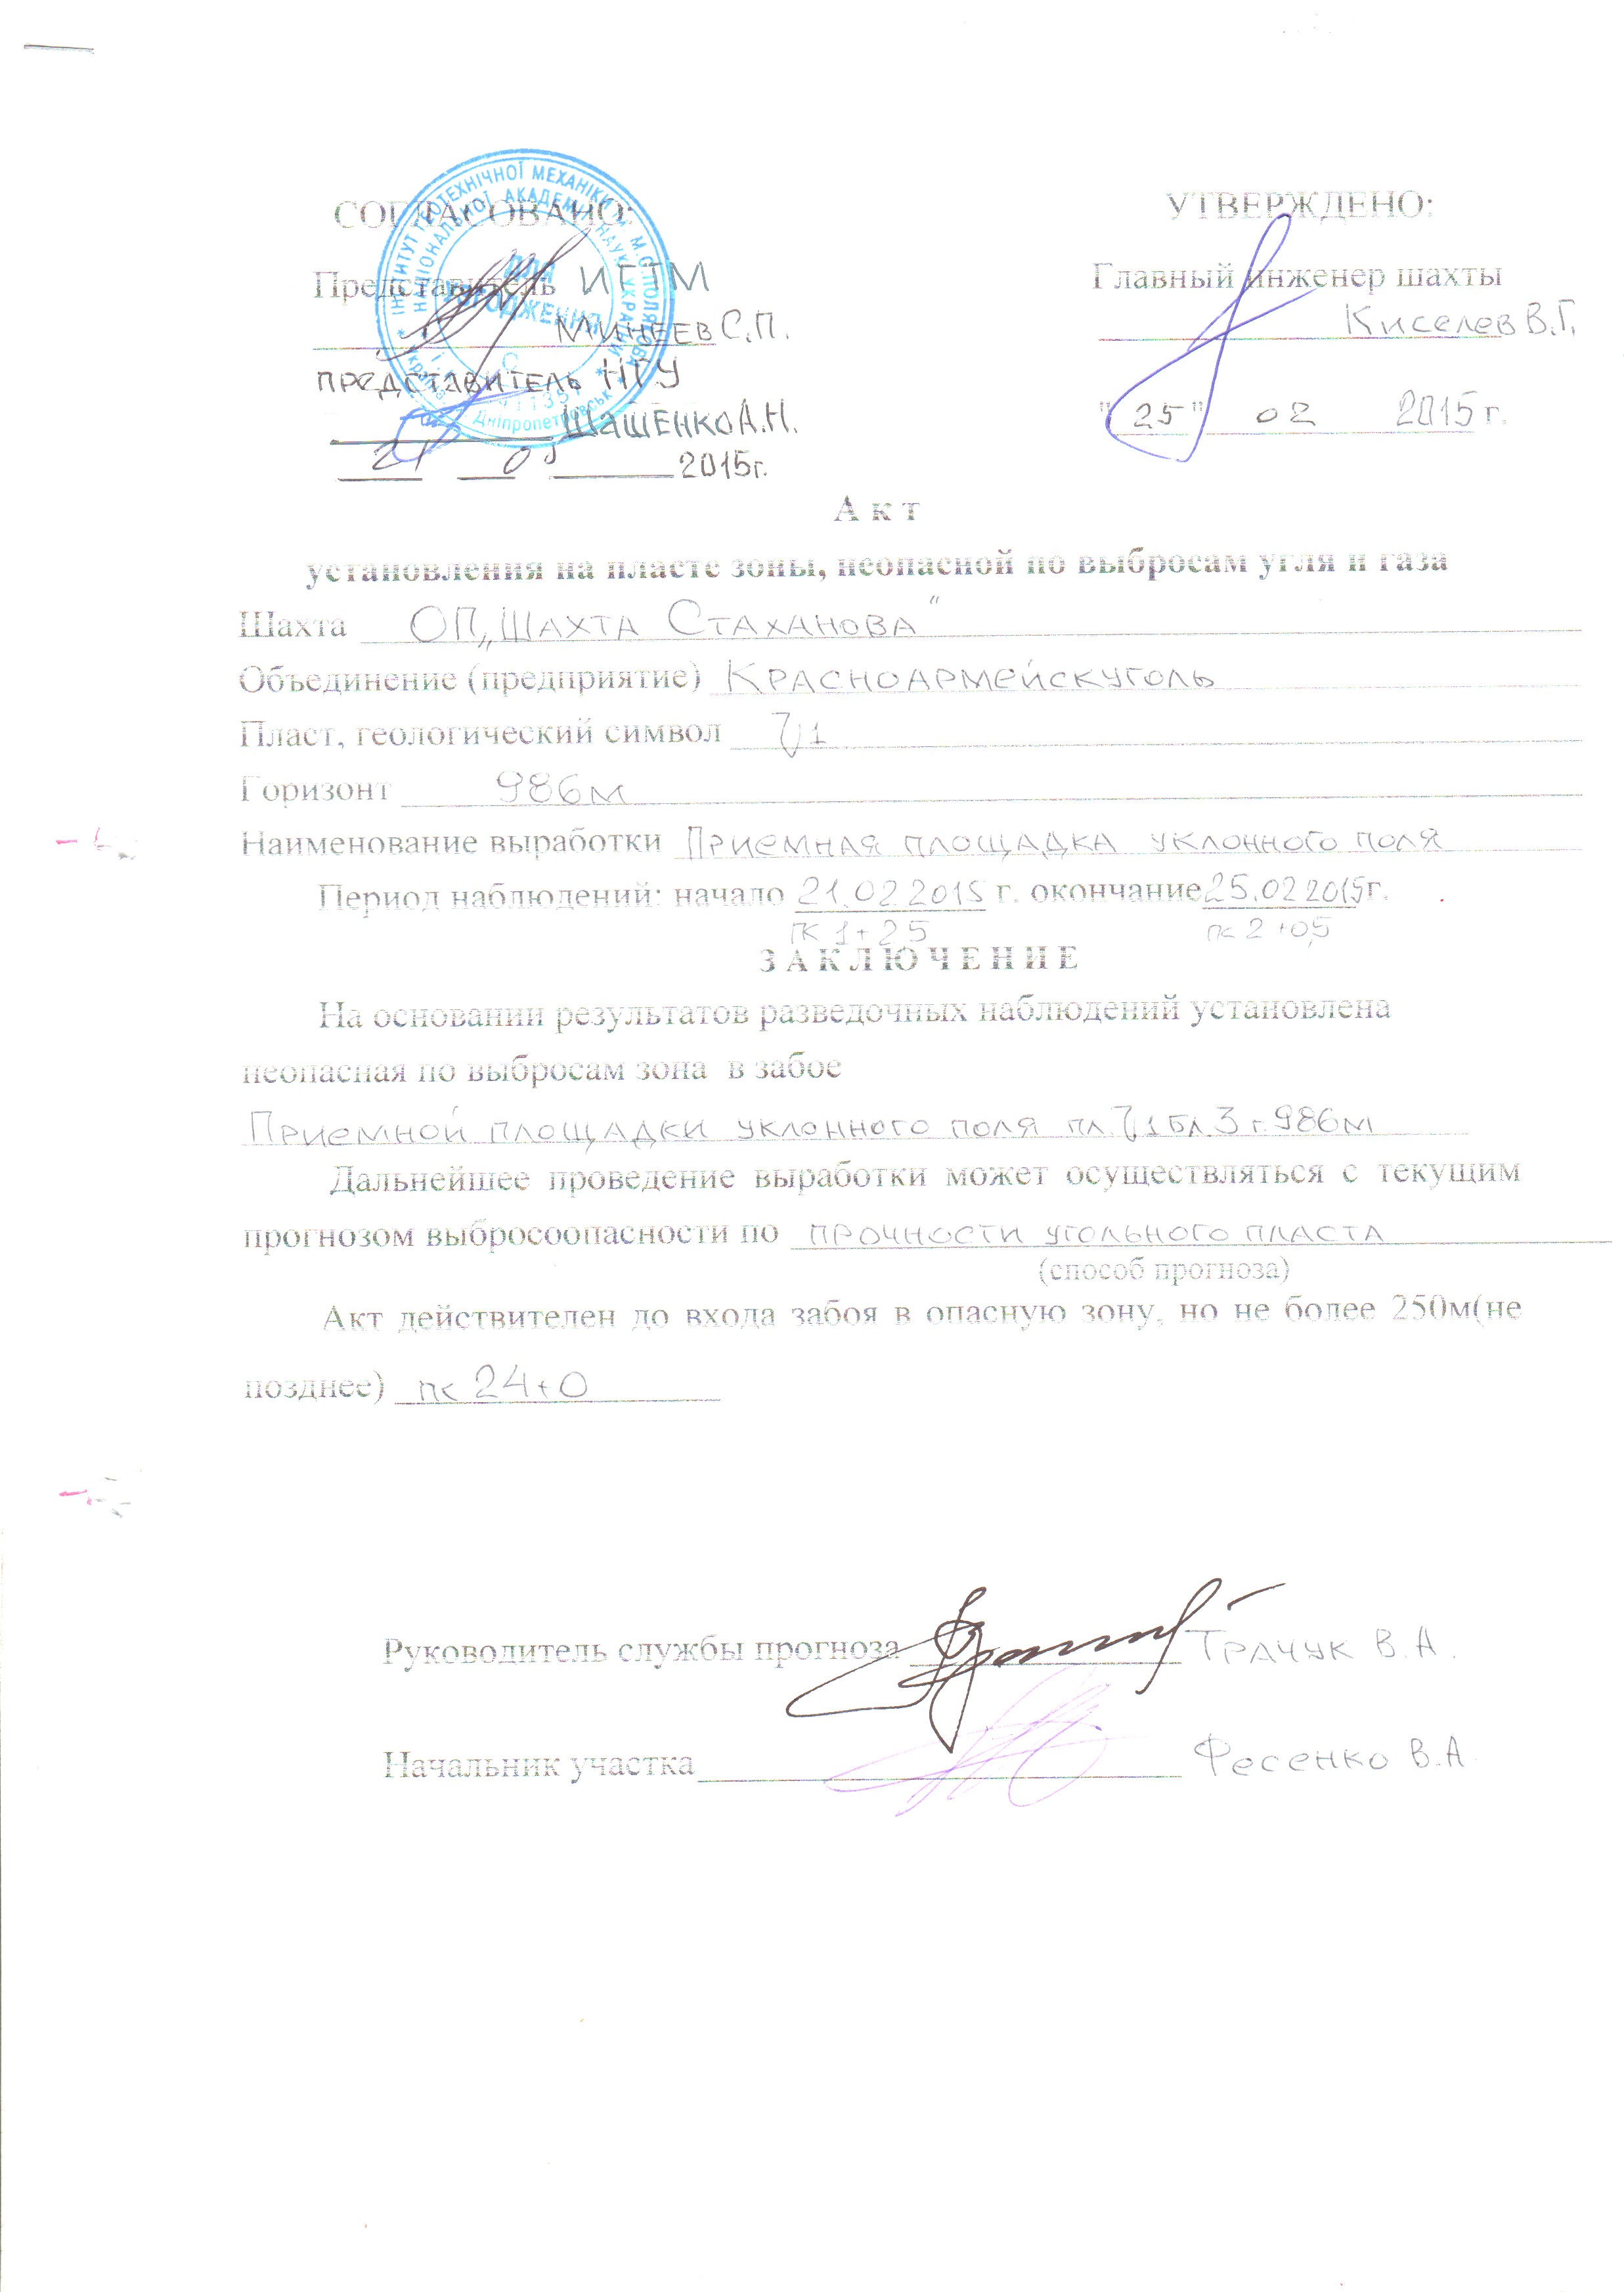 СОГЛАСОВАНО:
Представитель ИГТМ
Минеев С.П.
представитель НГУ
Шашенко А.Н.
2015г.
УТВЕРЖДЕНО:
Главный инженер шахты
Киселев В.Г.
"25" 02 2015 г.
ІНСТИТУТ ГЕОТЕХНІЧНОЇ МЕХАНІКИ ІМ. М.С. ПОЛЯКОВА
НАЦІОНАЛЬНОЇ АКАДЕМІЇ НАУК УКРАЇНИ
Дніпропетровськ
А к т
установления на пласте зоны, неопасной по выбросам угля и газа
Шахта ОП „Шахта Стаханова"
Объединение (предприятие) Красноармейскуголь
Пласт, геологический символ l1
Горизонт 986м
Наименование выработки Приемная площадка уклонного поля
Период наблюдений: начало 21.02 2015 г. окончание 25.02 2015г.
ПК 1+25 пк 2+0,5
З А К Л Ю Ч Е Н И Е
На основании результатов разведочных наблюдений установлена
неопасная по выбросам зона в забое
Приемной площадки уклонного поля пл. l1 бл. 3 г. 986м
Дальнейшее проведение выработки может осуществляться с текущим
прогнозом выбросоопасности по прочности угольного пласта
(способ прогноза)
Акт действителен до входа забоя в опасную зону, но не более 250м(не
позднее) пк 24+0
Руководитель службы прогноза Трачук В.А.
Начальник участка Фесенко В.А